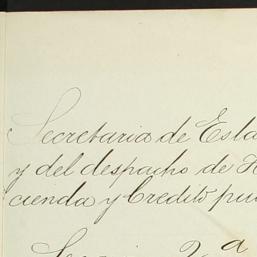 Secretaria de Esta
y del despacho de H
cienda y Credito pu
2ª